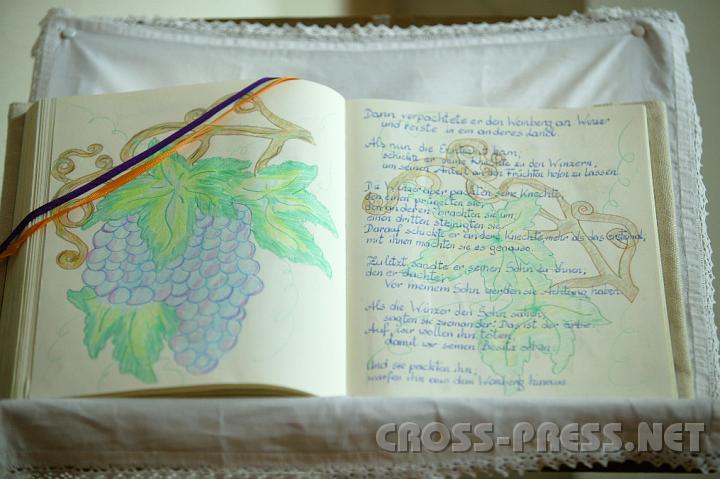 Dann verpachtete er den Weinberg an Winzer
und reiste in ein anderes Land.
Als nun die Erntezeit kam,
schickte er seine Knechte zu den Winzern,
um seinen Anteil an den Früchten holen zu lassen.
Die Winzer aber packten seine Knechte,
den einen prügelten sie,
den anderen brachten sie um,
einen dritten steinigten sie.
Darauf schickte er andere Knechte, mehr als das erstemal,
mit ihnen machten sie es genauso.
Zuletzt sandte er seinen Sohn zu ihnen,
denn er dachte:
Vor meinem Sohn werden sie Achtung haben.
Als die Winzer den Sohn sahen,
sagten sie zueinander: Das ist der Erbe.
Auf, wir wollen ihn töten,
damit wir seinen Besitz erben.
Und sie packten ihn,
warfen ihn aus dem Weinberg hinaus
CROSS-PRESS.NET